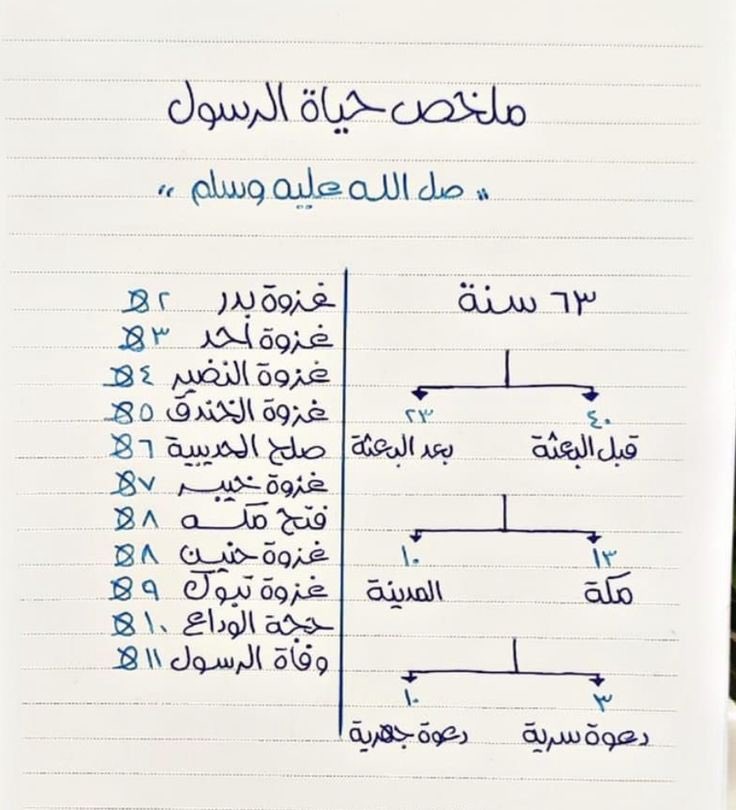 ملخص حياة الرسول
" صل الله عليه وسلم "
٦٣ سنة
٤٠
٢٣
قبل البعثة
بعد البعثة
١٣
١٠
مكة
المدينة
٣
١٠
دعوة سرية
دعوة جهرية
غزوة بدر ٢ هـ
غزوة أحد ٣ هـ
غزوة النضير ٤ هـ
غزوة الخندق ٥ هـ
صلح الحديبية ٦ هـ
غزوة خيبر ٧ هـ
فتح مكة ٨ هـ
غزوة حنين ٨ هـ
غزوة تبوك ٩ هـ
حجة الوداع ١٠ هـ
وفاة الرسول ١١ هـ